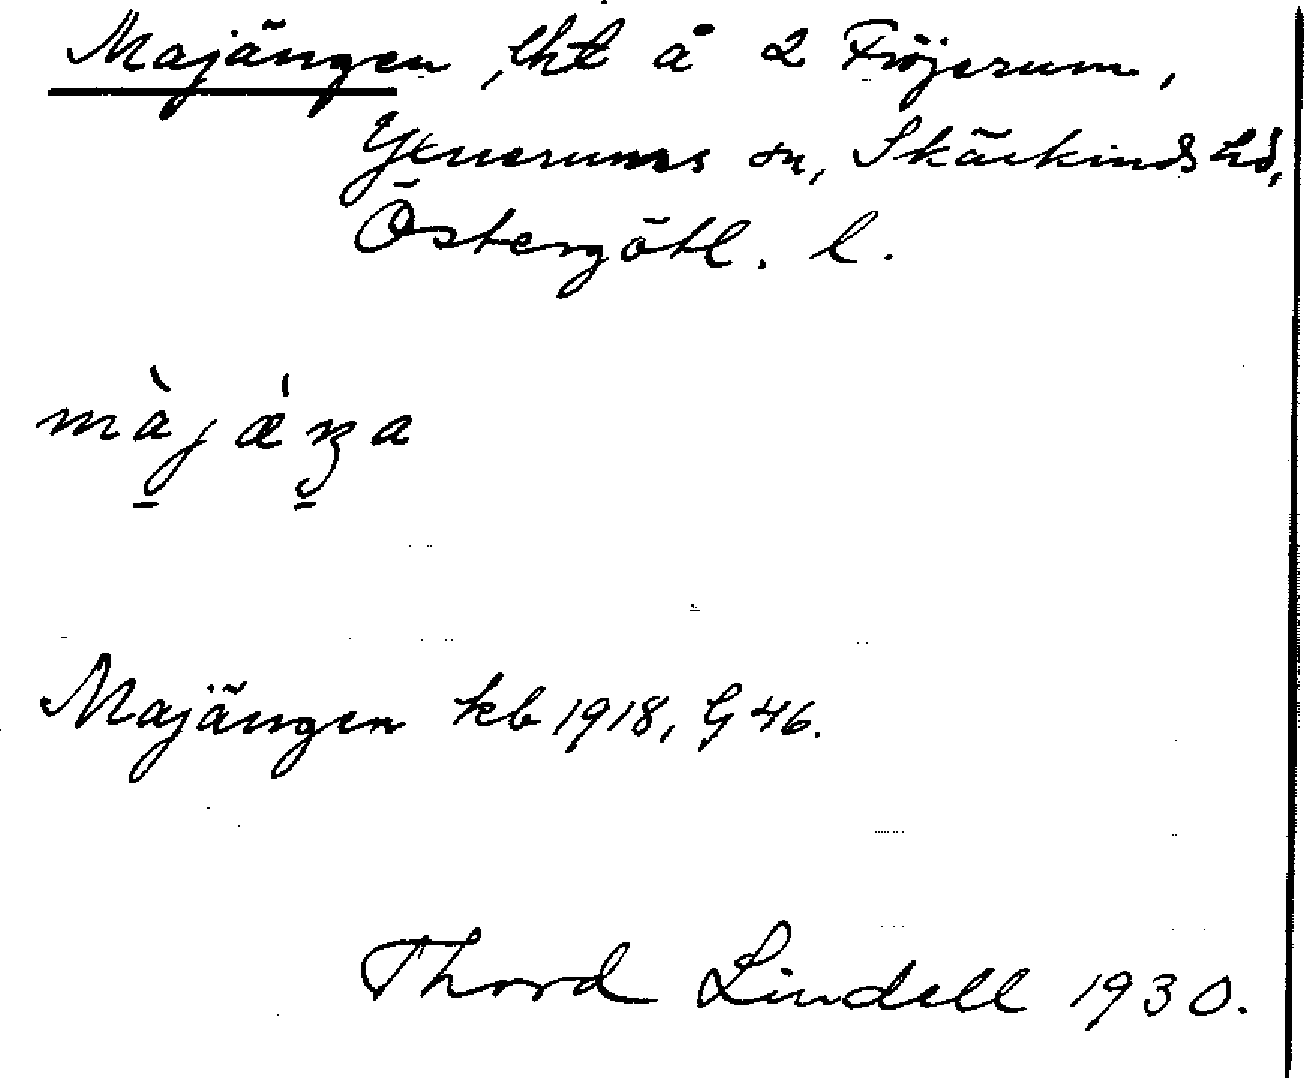 Majängen, lht å 2 Fröjerum,
Yxnerums sn, Skärkinds hd,
Östergötl. l.
màjǽŋa
Majängen kb 1918, G 46.
Thord Lindell 1930.